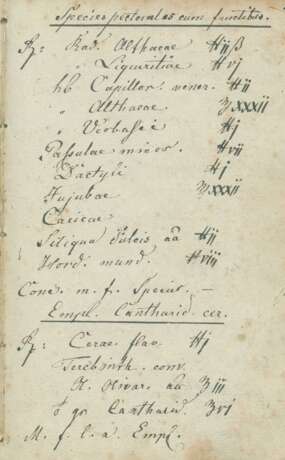 Species pectorales cum fructibus.
Rp: Rad. Althaeae ℔ijß
" Liquiritiae ℔vj
hb Capillor: vener. ℔ij
" Althaeae ℥xxxii
" Verbasci ℔j
Passulae minor. ℔vij
Dactyli ℔j
Jujubae ℥xxxii
Caricae
Siliqua dulcis aa ℔ij
Hord: mund. ℔viij
Conc. m. f. Species. —
Empl. Cantharid. cer.
Rp: Cerae flav. ℔j
Terebinth. com.
Ol. Olivar. aa ℥iij
gr Cantharid. ℥vj
M. f. l. a. Empl.